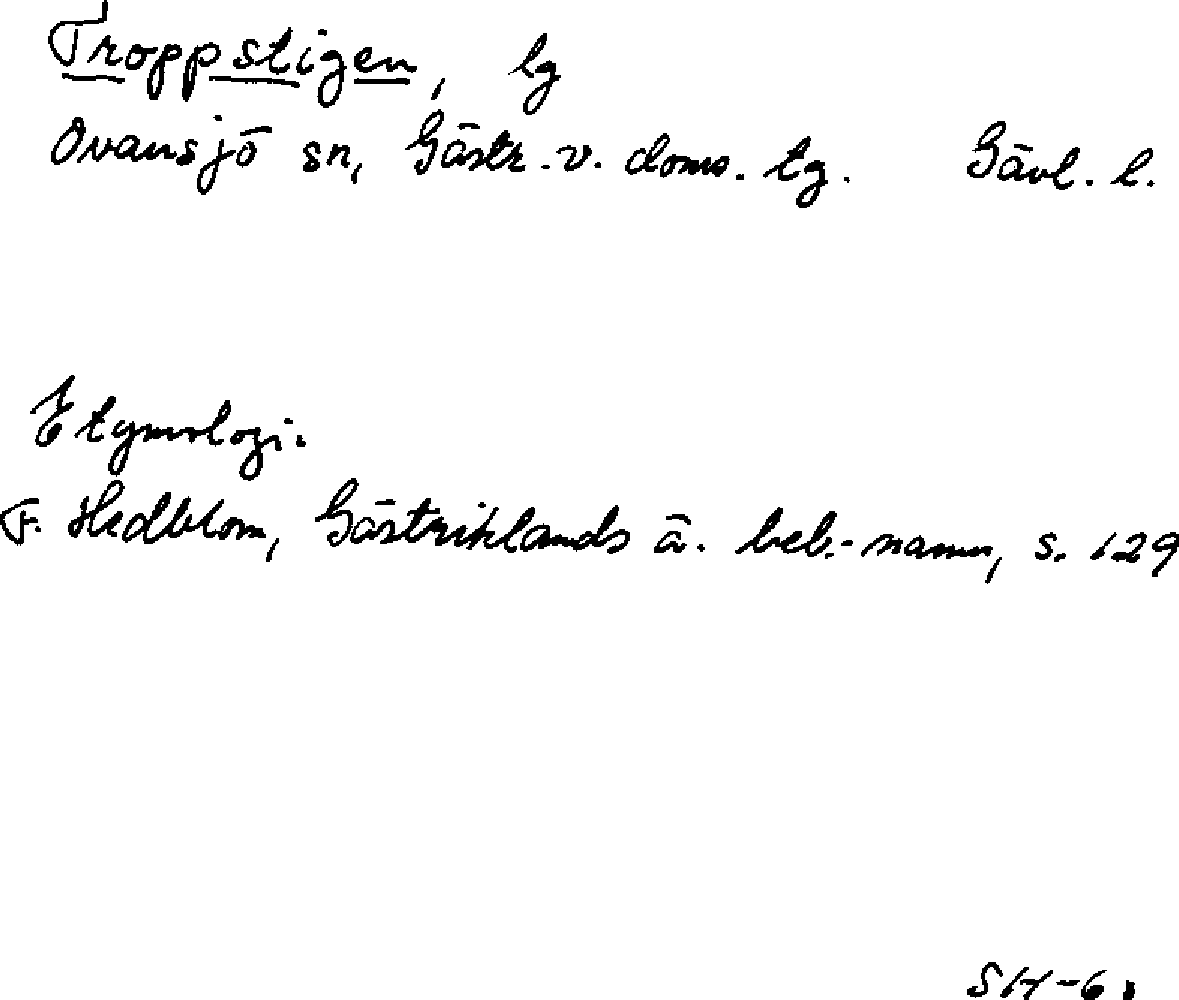 Troppstigen, lg
Ovansjö sn, Gästr. v. doms. tg. Gävl. l.
Etymologi.
F. Hedblom, Gästriklands ä. beb.-namn, s. 129
SH-61